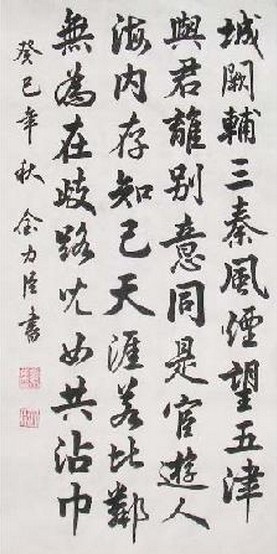 城闕輔三秦風煙望五津
與君離別意同是官遊人
海内存知己天涯若比鄰
無為在歧路兒女共沾巾
癸巳年秋力書